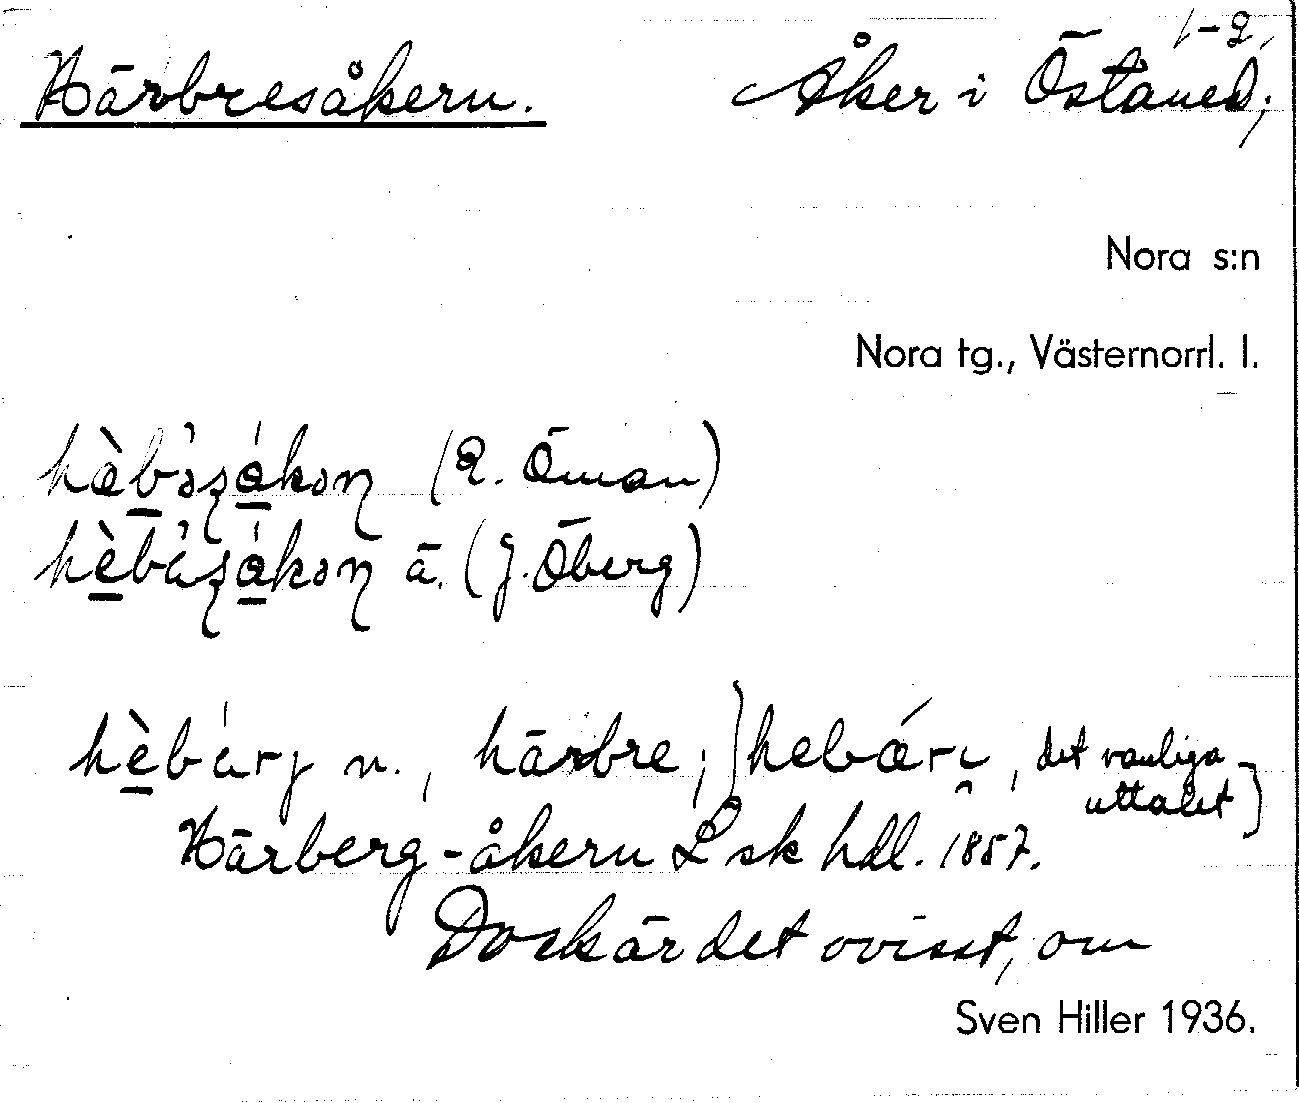 1-2,
Härbresåkern. Åker i Östaned;
Nora s:n
Nora tg., Västernorrl. l.
(E. Öman)
ä. (J. Öberg)
n., härbre; det vanliga
uttalet]
Härberg-åkern L sk hdl. 1857.
Dock är det ovisst, om
Sven Hiller 1936.